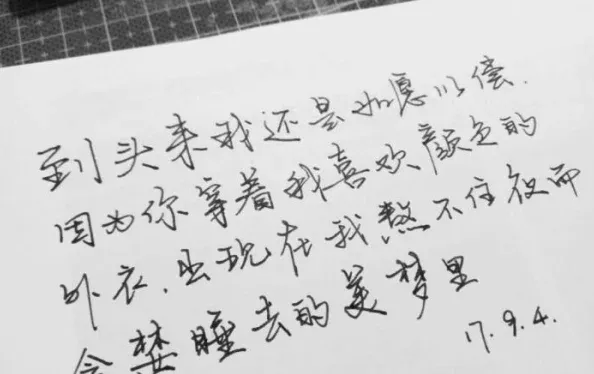 到头来我还是如愿以偿.
因为你穿着我喜欢颜色的
外衣.出现在我熬不住夜而
贪婪睡去的美梦里
17.9.4.